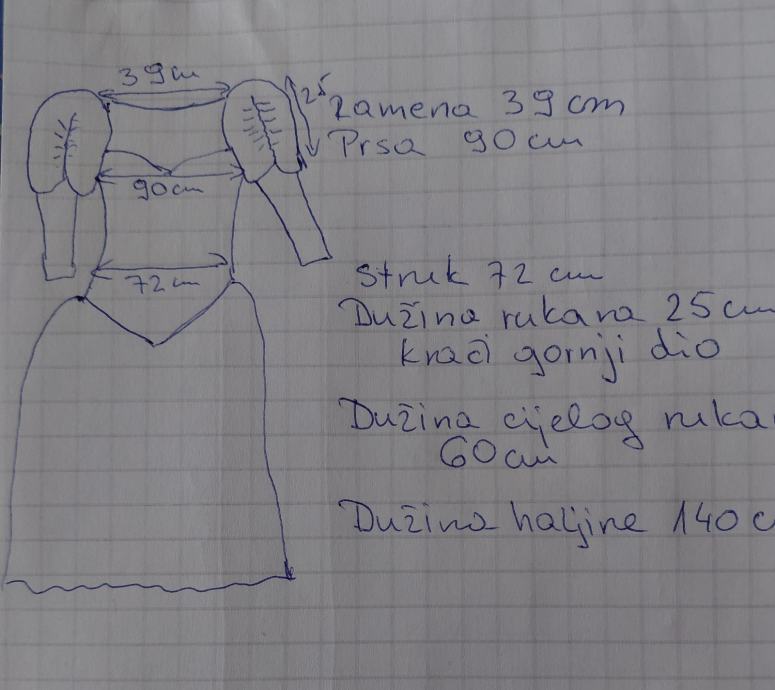 39 cm
25
Ramena 39 cm
Prsa 90 cm
90 cm
Struk 72 cm
72 cm
Dužina rukava 25 cm
kraći gornji dio
Dužina cijelog ruka
60 cm
Dužina haljine 140 c